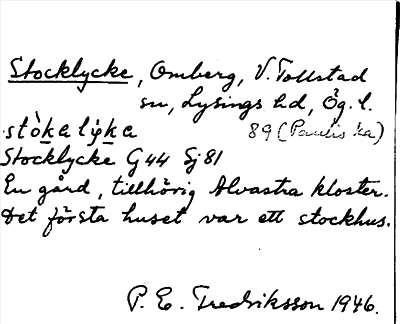 Stocklycke, Omberg, V. Tollstad
sn, Lysings hd, Ög. l.
stò̱ka lỳ̱ka 89 (Paulis ka)
Stocklycke G44 Sj81
En gård, tillhörig Alvastra kloster.
Det första huset var ett stockhus.
P. E. Fredriksson 1946.